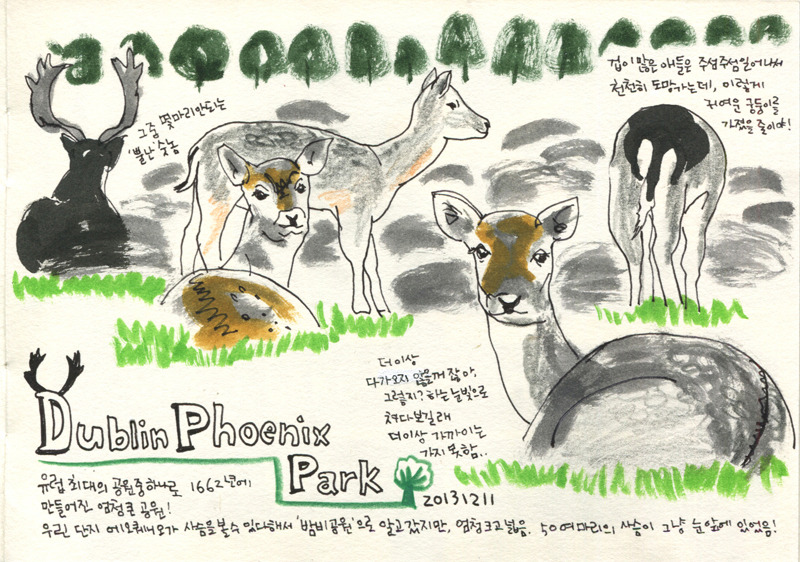 겁이 많은 애들은 주섬주섬 일어나서
천천히 도망가는데, 이렇게
귀여운 궁둥이를
가졌을 줄이야!
그중 몇마리 안되는
'뿔난 숫놈
더이상
다가오지 않을꺼 잖아,
그렇지? 하는 눈빛으로
쳐다보길래
더이상 가까이는
가지 못함..
Dublin Phoenix
Park
20131211
유럽 최대의 공원중 하나로 1662년에
만들어진 엄청 큰 공원!
우린 단지 사슴을 볼수 있다해서 '밤비공원'으로 알고 갔지만, 엄청크고 넓음. 50여마리의 사슴이 그냥 눈앞에 있었음!